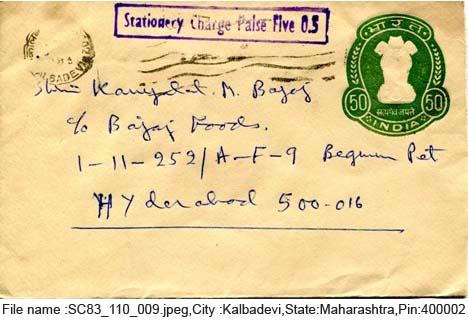 Stationery Charge Paise Five 0.5
भारत
50 50
सत्यमेव जयते
INDIA
KALBADEVI
Shri M. Bajaj
C/o Bajaj Foods.
1-11-252/A-F-9 Begum Pet
Hyderabad 500-016
File name :SC83_110_009.jpeg,City :Kalbadevi,State:Maharashtra,Pin:400002